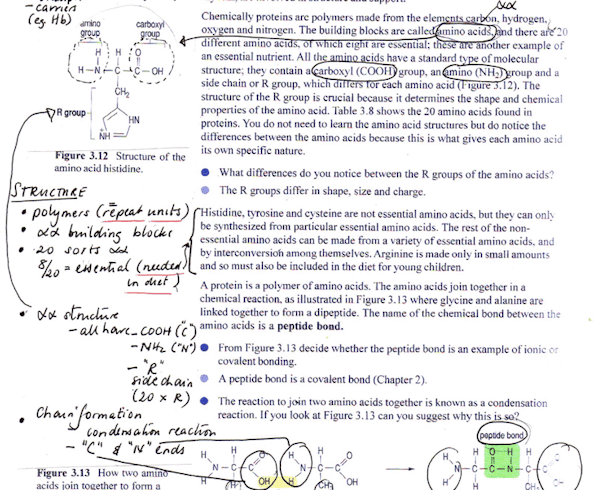 - carriers
(eg Hb)
amino
group
carboxyl
group
H H O
H N C C OH
CH₂
R group
HN
NH
Figure 3.12 Structure of the
amino acid histidine.
STRUCTURE
• polymers (repeat units)
• αα building blocks
• 20 sorts αα
8/20 = essential (needed
in diet)
• αα structure
- all have -COOH ("C")
- NH₂ ("N")
- "R"
side chain
(20 x R)
• Chain formation
condensation reaction
- "C" & "N" ends
Figure 3.13 How two amino
acids join together to form a
αα
Chemically proteins are polymers made from the elements carbon, hydrogen,
oxygen and nitrogen. The building blocks are called amino acids, and there are 20
different amino acids, of which eight are essential; these are another example of
an essential nutrient. All the amino acids have a standard type of molecular
structure; they contain a carboxyl (COOH) group, an amino (NH₂) group and a
side chain or R group, which differs for each amino acid (Figure 3.12). The
structure of the R group is crucial because it determines the shape and chemical
properties of the amino acid. Table 3.8 shows the 20 amino acids found in
proteins. You do not need to learn the amino acid structures but do notice the
differences between the amino acids because this is what gives each amino acid
its own specific nature.
● What differences do you notice between the R groups of the amino acids?
● The R groups differ in shape, size and charge.
Histidine, tyrosine and cysteine are not essential amino acids, but they can only
be synthesized from particular essential amino acids. The rest of the non-
essential amino acids can be made from a variety of essential amino acids, and
by interconversion among themselves. Arginine is made only in small amounts
and so must also be included in the diet for young children.
A protein is a polymer of amino acids. The amino acids join together in a
chemical reaction, as illustrated in Figure 3.13 where glycine and alanine are
linked together to form a dipeptide. The name of the chemical bond between the
amino acids is a peptide bond.
● From Figure 3.13 decide whether the peptide bond is an example of ionic or
covalent bonding.
● A peptide bond is a covalent bond (Chapter 2).
● The reaction to join two amino acids together is known as a condensation
reaction. If you look at Figure 3.13 can you suggest why this is so?
peptide bond